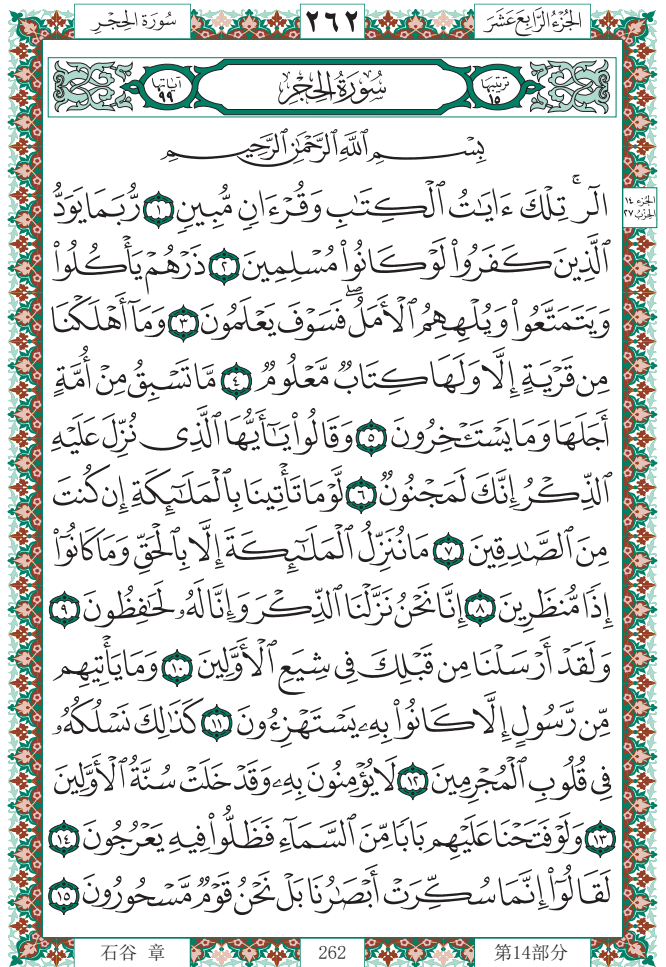 الجُزْءُ الرَّابِعَ عَشَرَ ٢٦٢ سُورَةُ الحِجْرِ
تَرْتِيبُهَا ١٥ سُورَةُ الحِجْرِ آيَاتُهَا ٩٩
بِسْمِ ٱللَّهِ ٱلرَّحْمَٰنِ ٱلرَّحِيمِ
الجزء ١٤
الحزب ٢٧
الٓرۚ تِلْكَ ءَايَٰتُ ٱلْكِتَٰبِ وَقُرْءَانٍ مُّبِينٍ ١ رُّبَمَا يَوَدُّ
ٱلَّذِينَ كَفَرُوا۟ لَوْ كَانُوا۟ مُسْلِمِينَ ٢ ذَرْهُمْ يَأْكُلُوا۟
وَيَتَمَتَّعُوا۟ وَيُلْهِهِمُ ٱلْأَمَلُۖ فَسَوْفَ يَعْلَمُونَ ٣ وَمَآ أَهْلَكْنَا
مِن قَرْيَةٍ إِلَّا وَلَهَا كِتَابٌ مَّعْلُومٌ ٤ مَّا تَسْبِقُ مِنْ أُمَّةٍ
أَجَلَهَا وَمَا يَسْتَـْٔخِرُونَ ٥ وَقَالُوا۟ يَٰٓأَيُّهَا ٱلَّذِى نُزِّلَ عَلَيْهِ
ٱلذِّكْرُ إِنَّكَ لَمَجْنُونٌ ٦ لَّوْ مَا تَأْتِينَا بِٱلْمَلَٰٓئِكَةِ إِن كُنتَ
مِنَ ٱلصَّٰدِقِينَ ٧ مَا نُنَزِّلُ ٱلْمَلَٰٓئِكَةَ إِلَّا بِٱلْحَقِّ وَمَا كَانُوٓا۟
إِذًا مُّنظَرِينَ ٨ إِنَّا نَحْنُ نَزَّلْنَا ٱلذِّكْرَ وَإِنَّا لَهُۥ لَحَٰفِظُونَ ٩
وَلَقَدْ أَرْسَلْنَا مِن قَبْلِكَ فِى شِيَعِ ٱلْأَوَّلِينَ ١٠ وَمَا يَأْتِيهِم
مِّن رَّسُولٍ إِلَّا كَانُوا۟ بِهِۦ يَسْتَهْزِءُونَ ١١ كَذَٰلِكَ نَسْلُكُهُۥ
فِى قُلُوبِ ٱلْمُجْرِمِينَ ١٢ لَا يُؤْمِنُونَ بِهِۦ وَقَدْ خَلَتْ سُنَّةُ ٱلْأَوَّلِينَ
١٣ وَلَوْ فَتَحْنَا عَلَيْهِم بَابًا مِّنَ ٱلسَّمَآءِ فَظَلُّوا۟ فِيهِ يَعْرُجُونَ ١٤
لَقَالُوٓا۟ إِنَّمَا سُكِّرَتْ أَبْصَٰرُنَا بَلْ نَحْنُ قَوْمٌ مَّسْحُورُونَ ١٥
石谷 章 262 第14部分